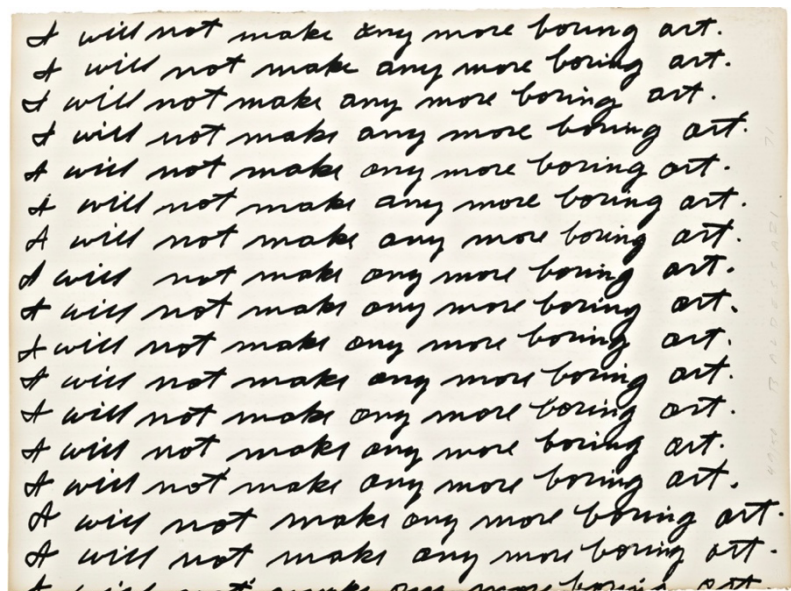 I will not make any more boring art.
I will not make any more boring art.
I will not make any more boring art.
I will not make any more boring art.
I will not make any more boring art.
I will not make any more boring art.
I will not make any more boring art.
I will not make any more boring art.
I will not make any more boring art.
I will not make any more boring art.
I will not make any more boring art.
I will not make any more boring art.
I will not make any more boring art.
I will not make any more boring art.
I will not make any more boring art.
I will not make any more boring art.
I will not make any more boring art